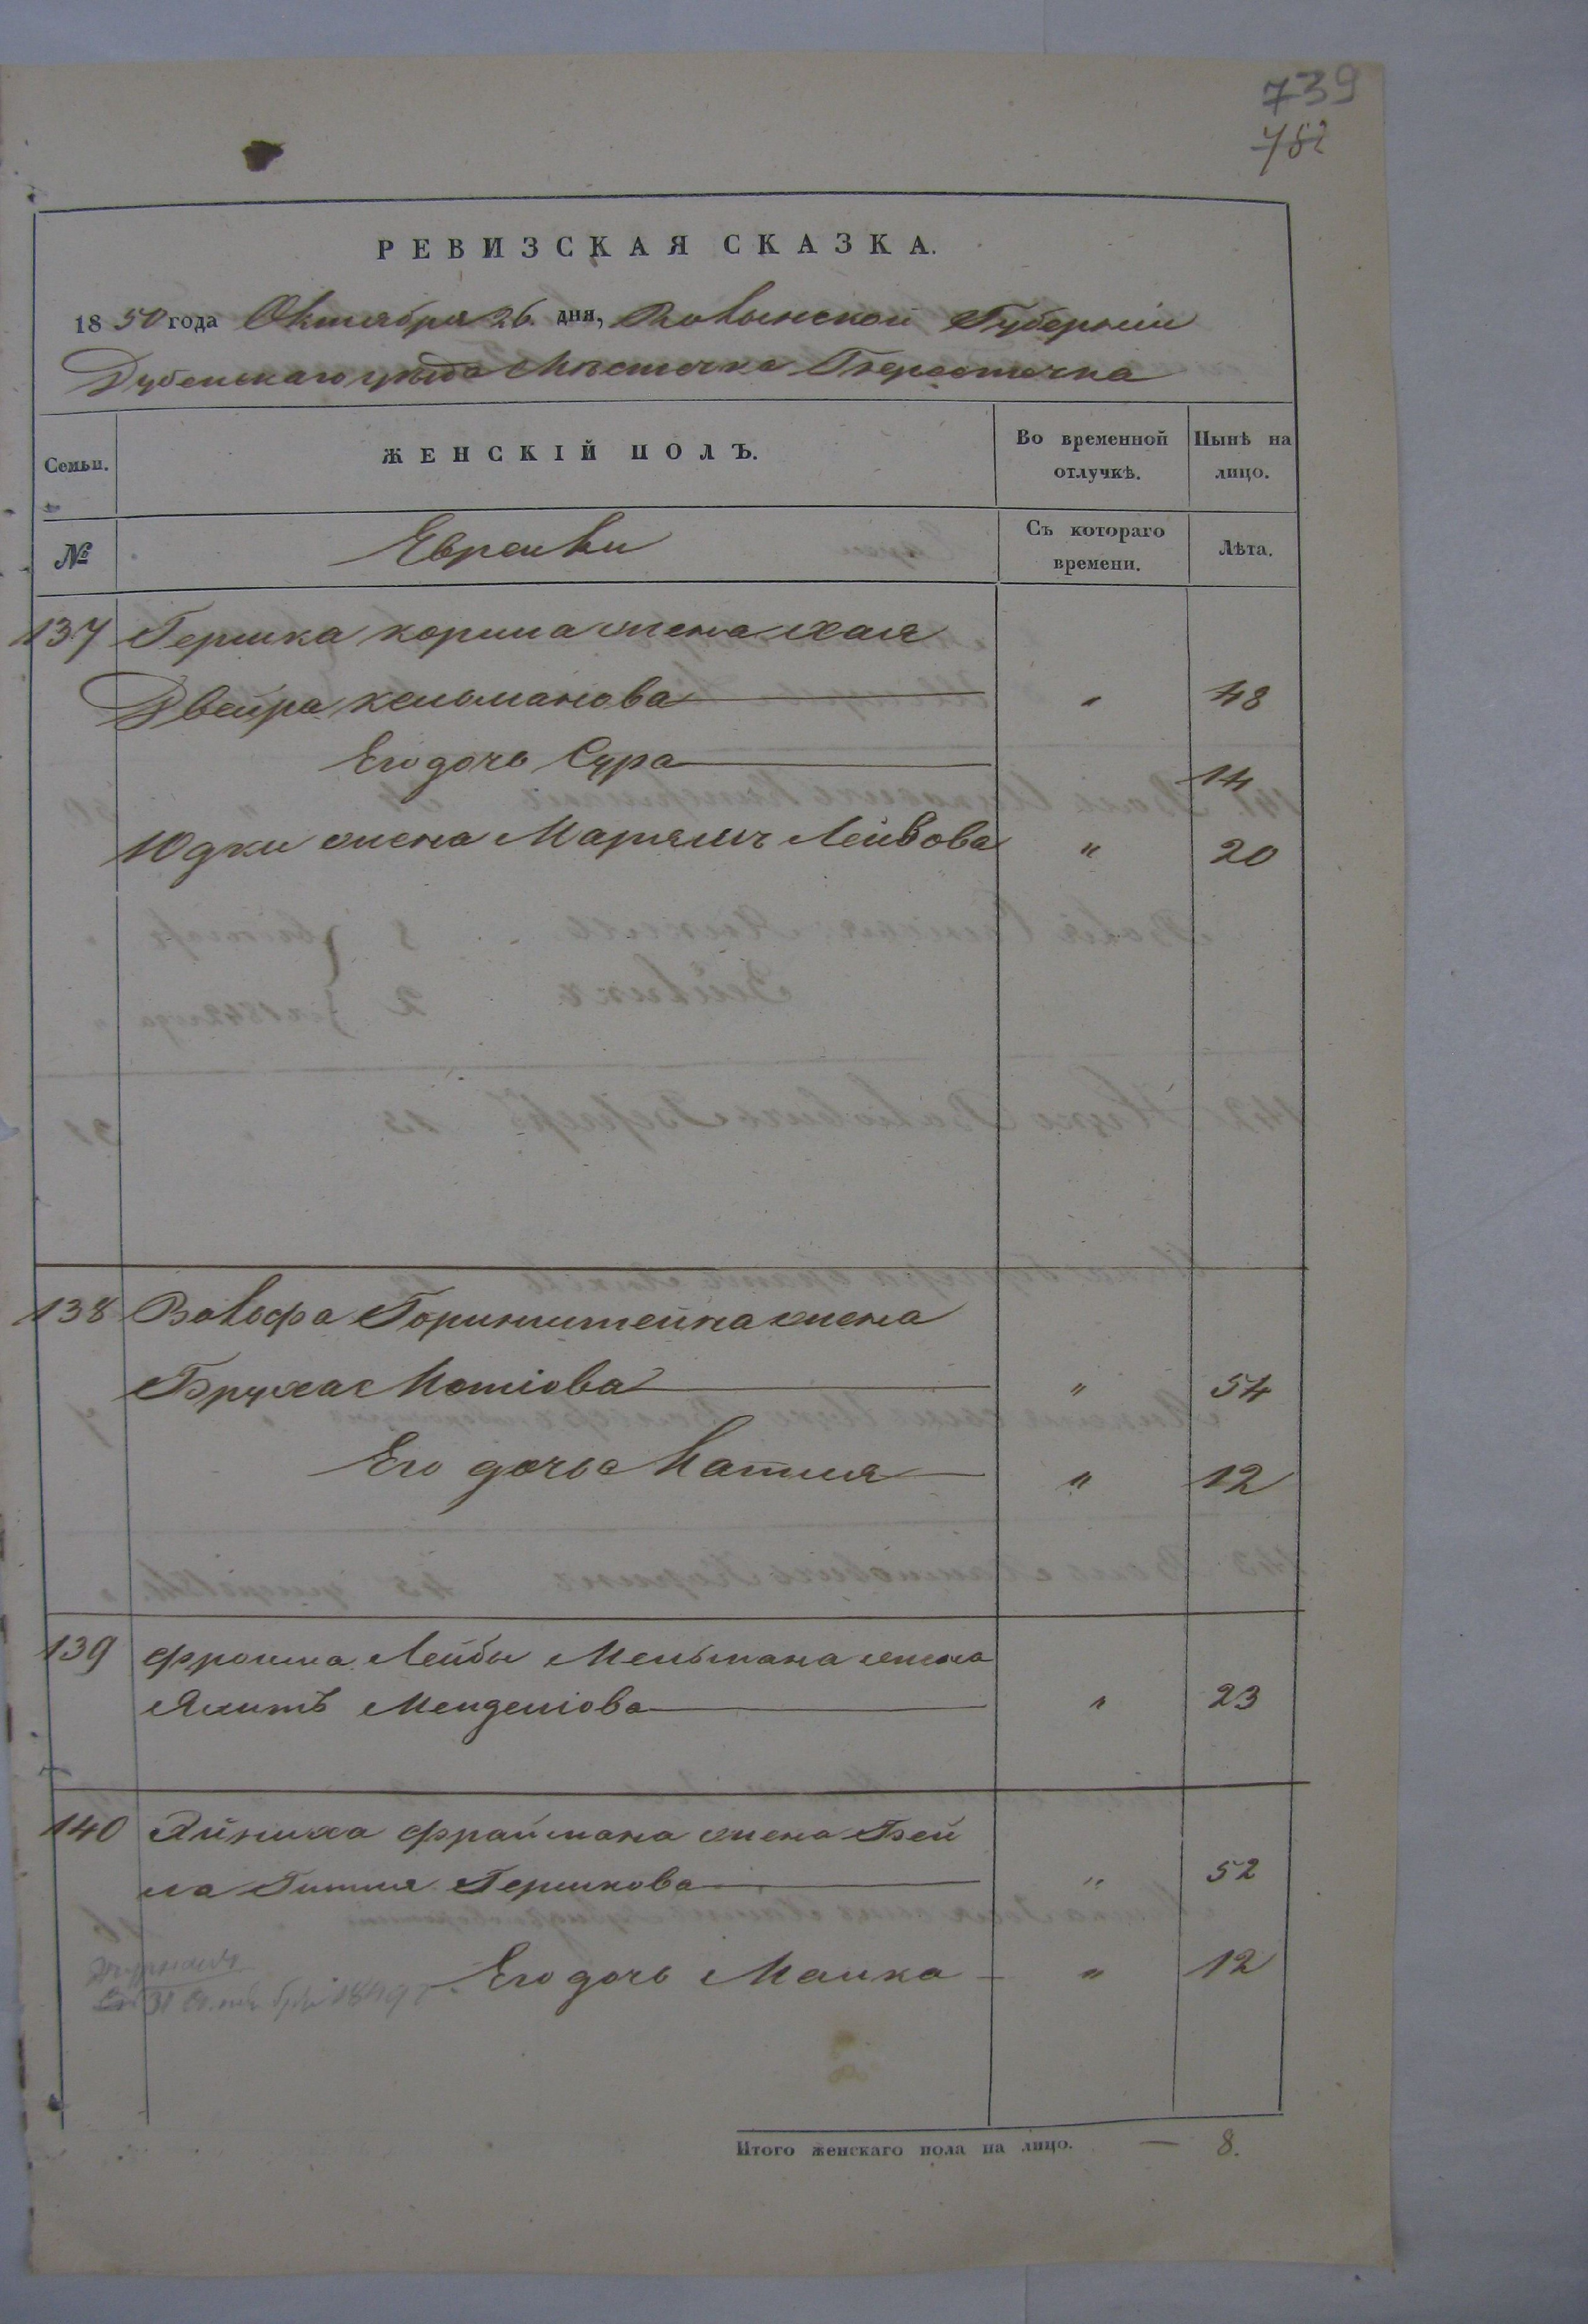 739
782
РЕВИЗСКАЯ СКАЗКА.
1850 года Октября 26. дня, Волынской Губернии
Дубенскаго уѣзда Мѣстечка Берестечка
Семьи.
ЖЕНСКІЙ ПОЛЪ.
Во временной отлучкѣ.
Нынѣ на лицо.
№
Еврейки
Съ котораго времени.
Лѣта.
137 Гершка корина жена Хая
Двейра кельманова " 48
Его дочь Сура 14
Юдки жена Марямъ Лейбова " 20
138 Вольфа Горинштейна жена
Бруха Мотіова " 54
Его дочь Матля " 12
139 Фроима Лейбы Мельмана жена
Менделіова " 23
140 Айниха Фраймана жена Бей
ла Гитля Гершкова " 52
31 1849 г. Его дочь Малка " 12
Итого женскаго пола на лицо. — 8.